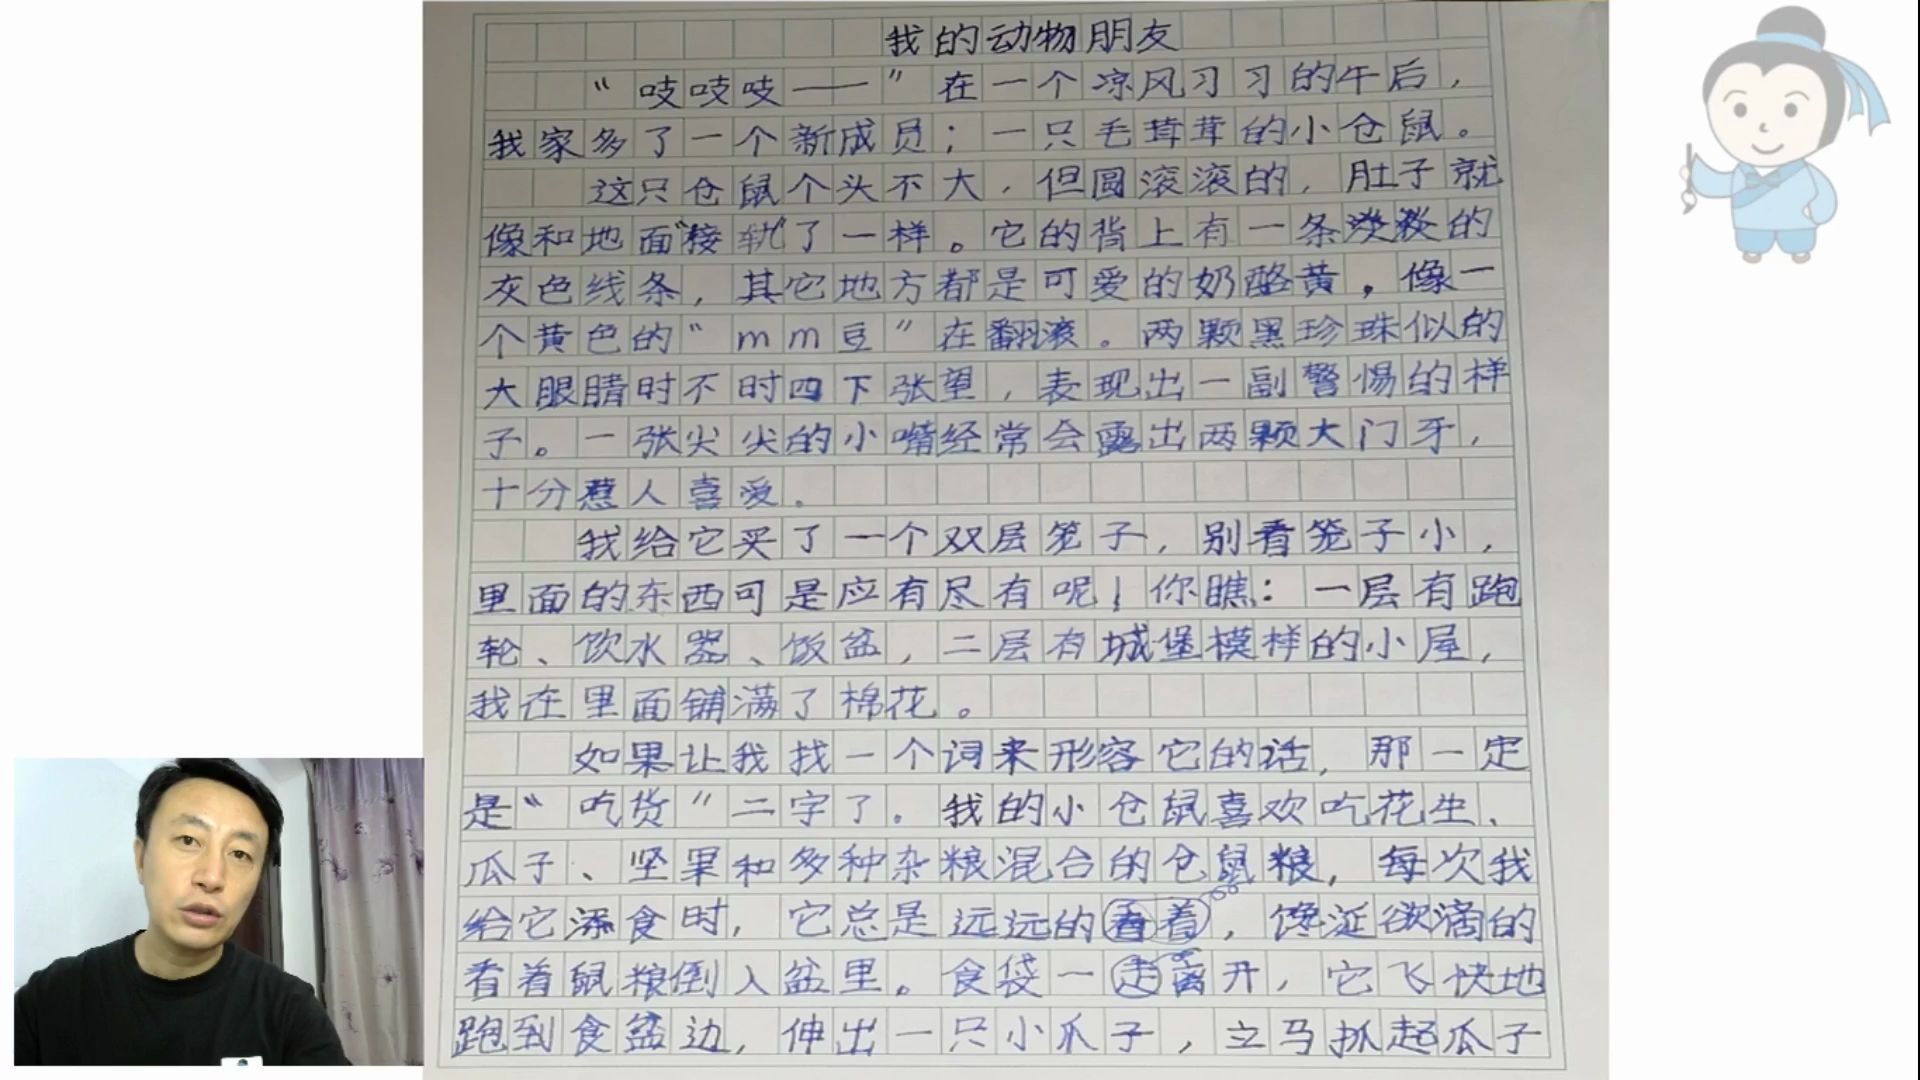 我的动物朋友
“吱吱吱——”在一个凉风习习的午后，
我家多了一个新成员；一只毛茸茸的小仓鼠。
这只仓鼠个头不大，但圆滚滚的，肚子就
像和地面“接轨”了一样。它的背上有一条淡淡的
灰色线条，其它地方都是可爱的奶酪黄，像一
个黄色的“mm豆”在翻滚。两颗黑珍珠似的
大眼睛时不时四下张望，表现出一副警惕的样
子。一张尖尖的小嘴经常会露出两颗大门牙，
十分惹人喜爱。
我给它买了一个双层笼子，别看笼子小，
里面的东西可是应有尽有呢！你瞧：一层有跑
轮、饮水器、饭盆，二层有城堡模样的小屋，
我在里面铺满了棉花。
如果让我找一个词来形容它的话，那一定
是“吃货”二字了。我的小仓鼠喜欢吃花生、
瓜子、坚果和多种杂粮混合的仓鼠粮，每次我
给它添食时，它总是远远的看着，馋涎欲滴的
看着鼠粮倒入盆里。食袋一走离开，它飞快地
跑到食盆边，伸出一只小爪子，立马抓起瓜子